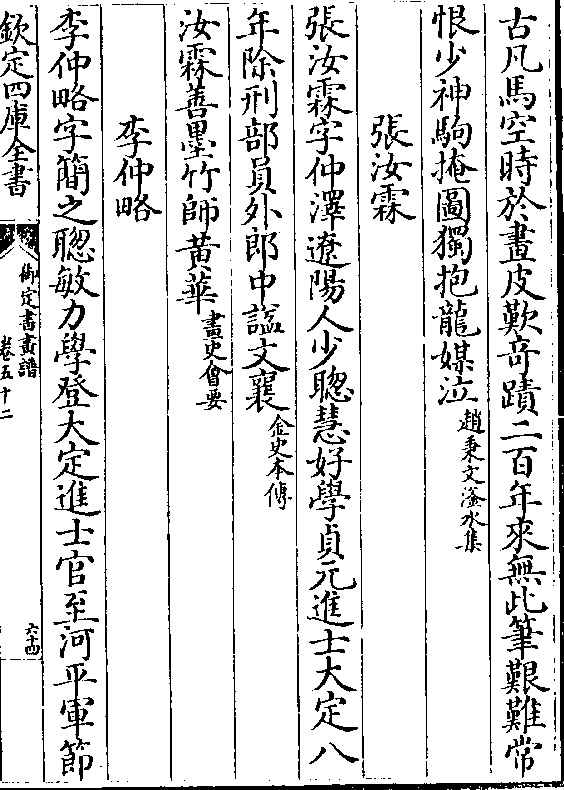 古凡馬空時於畫皮歎奇蹟二百年來無此筆艱難常
恨少神駒掩圖獨抱龍媒泣趙秉文滏水集
張汝霖
張汝霖字仲澤遼陽人少聰慧好學貞元進士大定八
年除刑部員外郎中諡文襄金史本傳
汝霖善墨竹師黃華畫史會要
李仲略
李仲略字簡之聰敏力學登大定進士官至河平軍節
欽定四庫全書
御定書畫譜
卷五十二
六十四